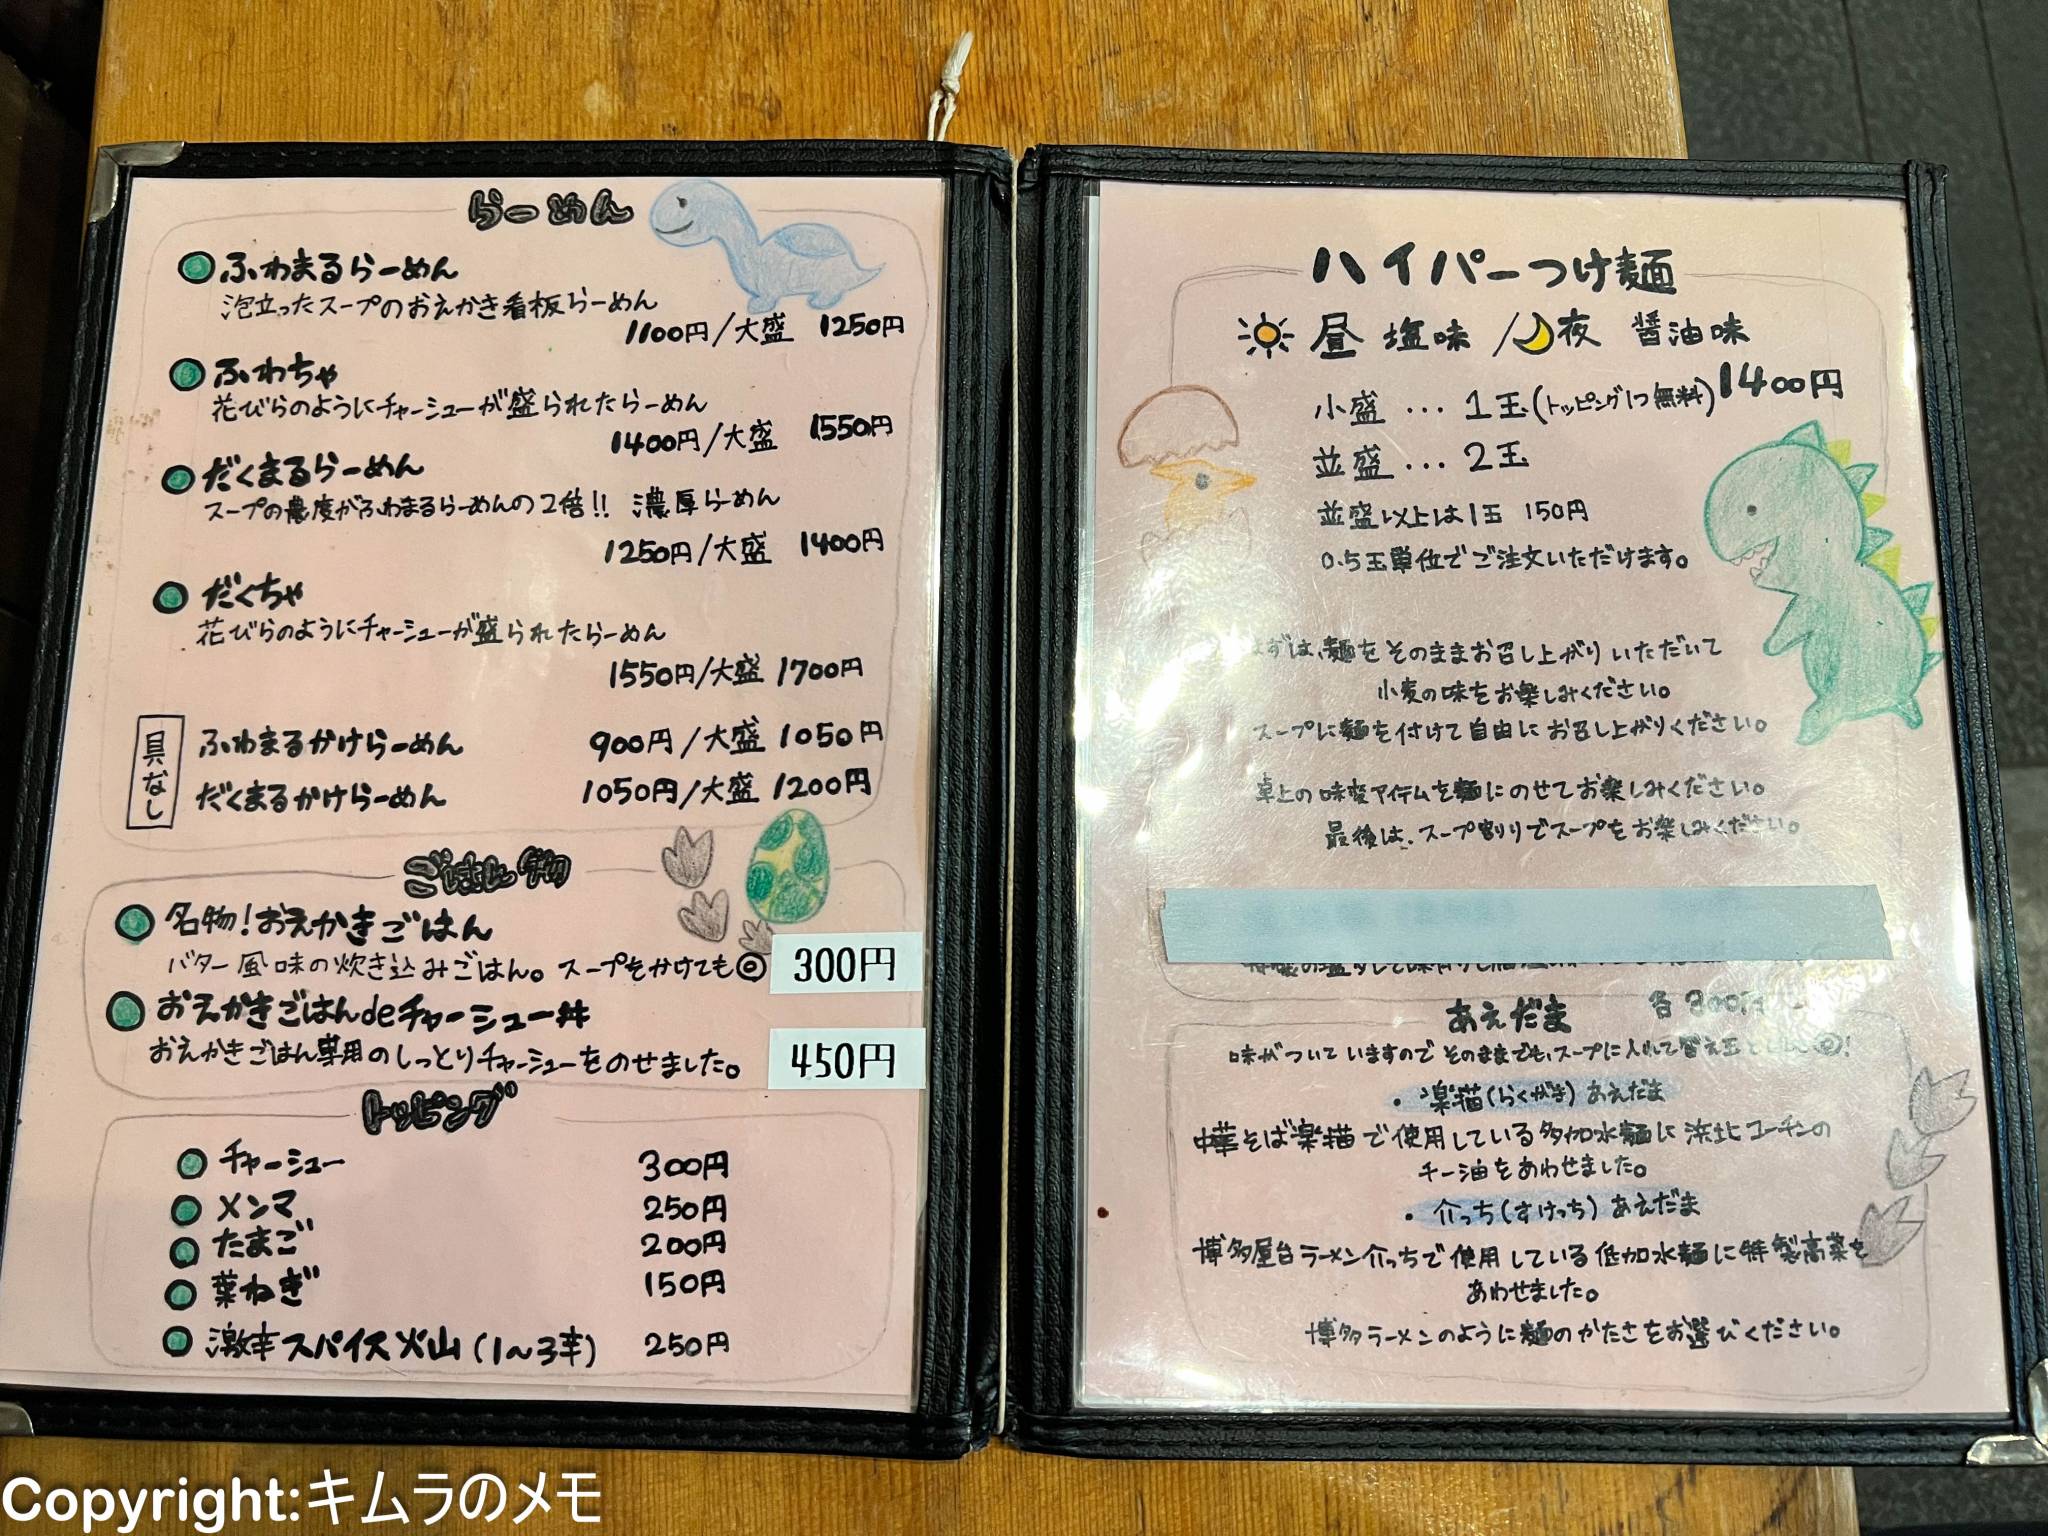 らーめん
ふわまるらーめん
泡立ったスープのおえかき看板らーめん
1100円/大盛 1250円
ふわちゃ
花びらのようにチャーシューが盛られたらーめん
1400円/大盛 1550円
だくまるらーめん
スープの濃度がふわまるらーめんの2倍!! 濃厚らーめん
1250円/大盛 1400円
だくちゃ
花びらのようにチャーシューが盛られたらーめん
1550円/大盛 1700円
具なし
ふわまるかけらーめん 900円/大盛 1050円
だくまるかけらーめん 1050円/大盛 1200円
ごはん物
名物!おえかきごはん
バター風味の炊き込みごはん。スープをかけても◎ 300円
おえかきごはんdeチャーシュー丼
おえかきごはん専用のしっとりチャーシューをのせました。 450円
トッピング
チャーシュー 300円
メンマ 250円
たまご 200円
葉ねぎ 150円
激辛スパイス火山(1〜3辛) 250円
ハイパーつけ麺
昼 塩味 / 夜 醤油味
1400円
小盛 … 1玉(トッピング1つ無料)
並盛 … 2玉
並盛以上は1玉 150円
0.5玉単位でご注文いただけます。
まずは、麺をそのままお召し上がりいただいて
小麦の味をお楽しみください。
スープに麺を付けて自由にお召し上がりください。
卓上の味変アイテムを麺にのせてお楽しみください。
最後は、スープ割りでスープをお楽しみください。
あえだま 各300円
味がついていますのでそのままでも、スープに入れて替え玉
・楽猫(らくがき)あえだま
中華そば楽猫で使用している多加水麺に浜北コーチンの
チー油をあわせました。
・介っち(すけっち)あえだま
博多屋台ラーメン介っちで使用している低加水麺に特製高菜を
あわせました。
博多ラーメンのように麺のかたさをお選びください。
Copyright:キムラのメモ